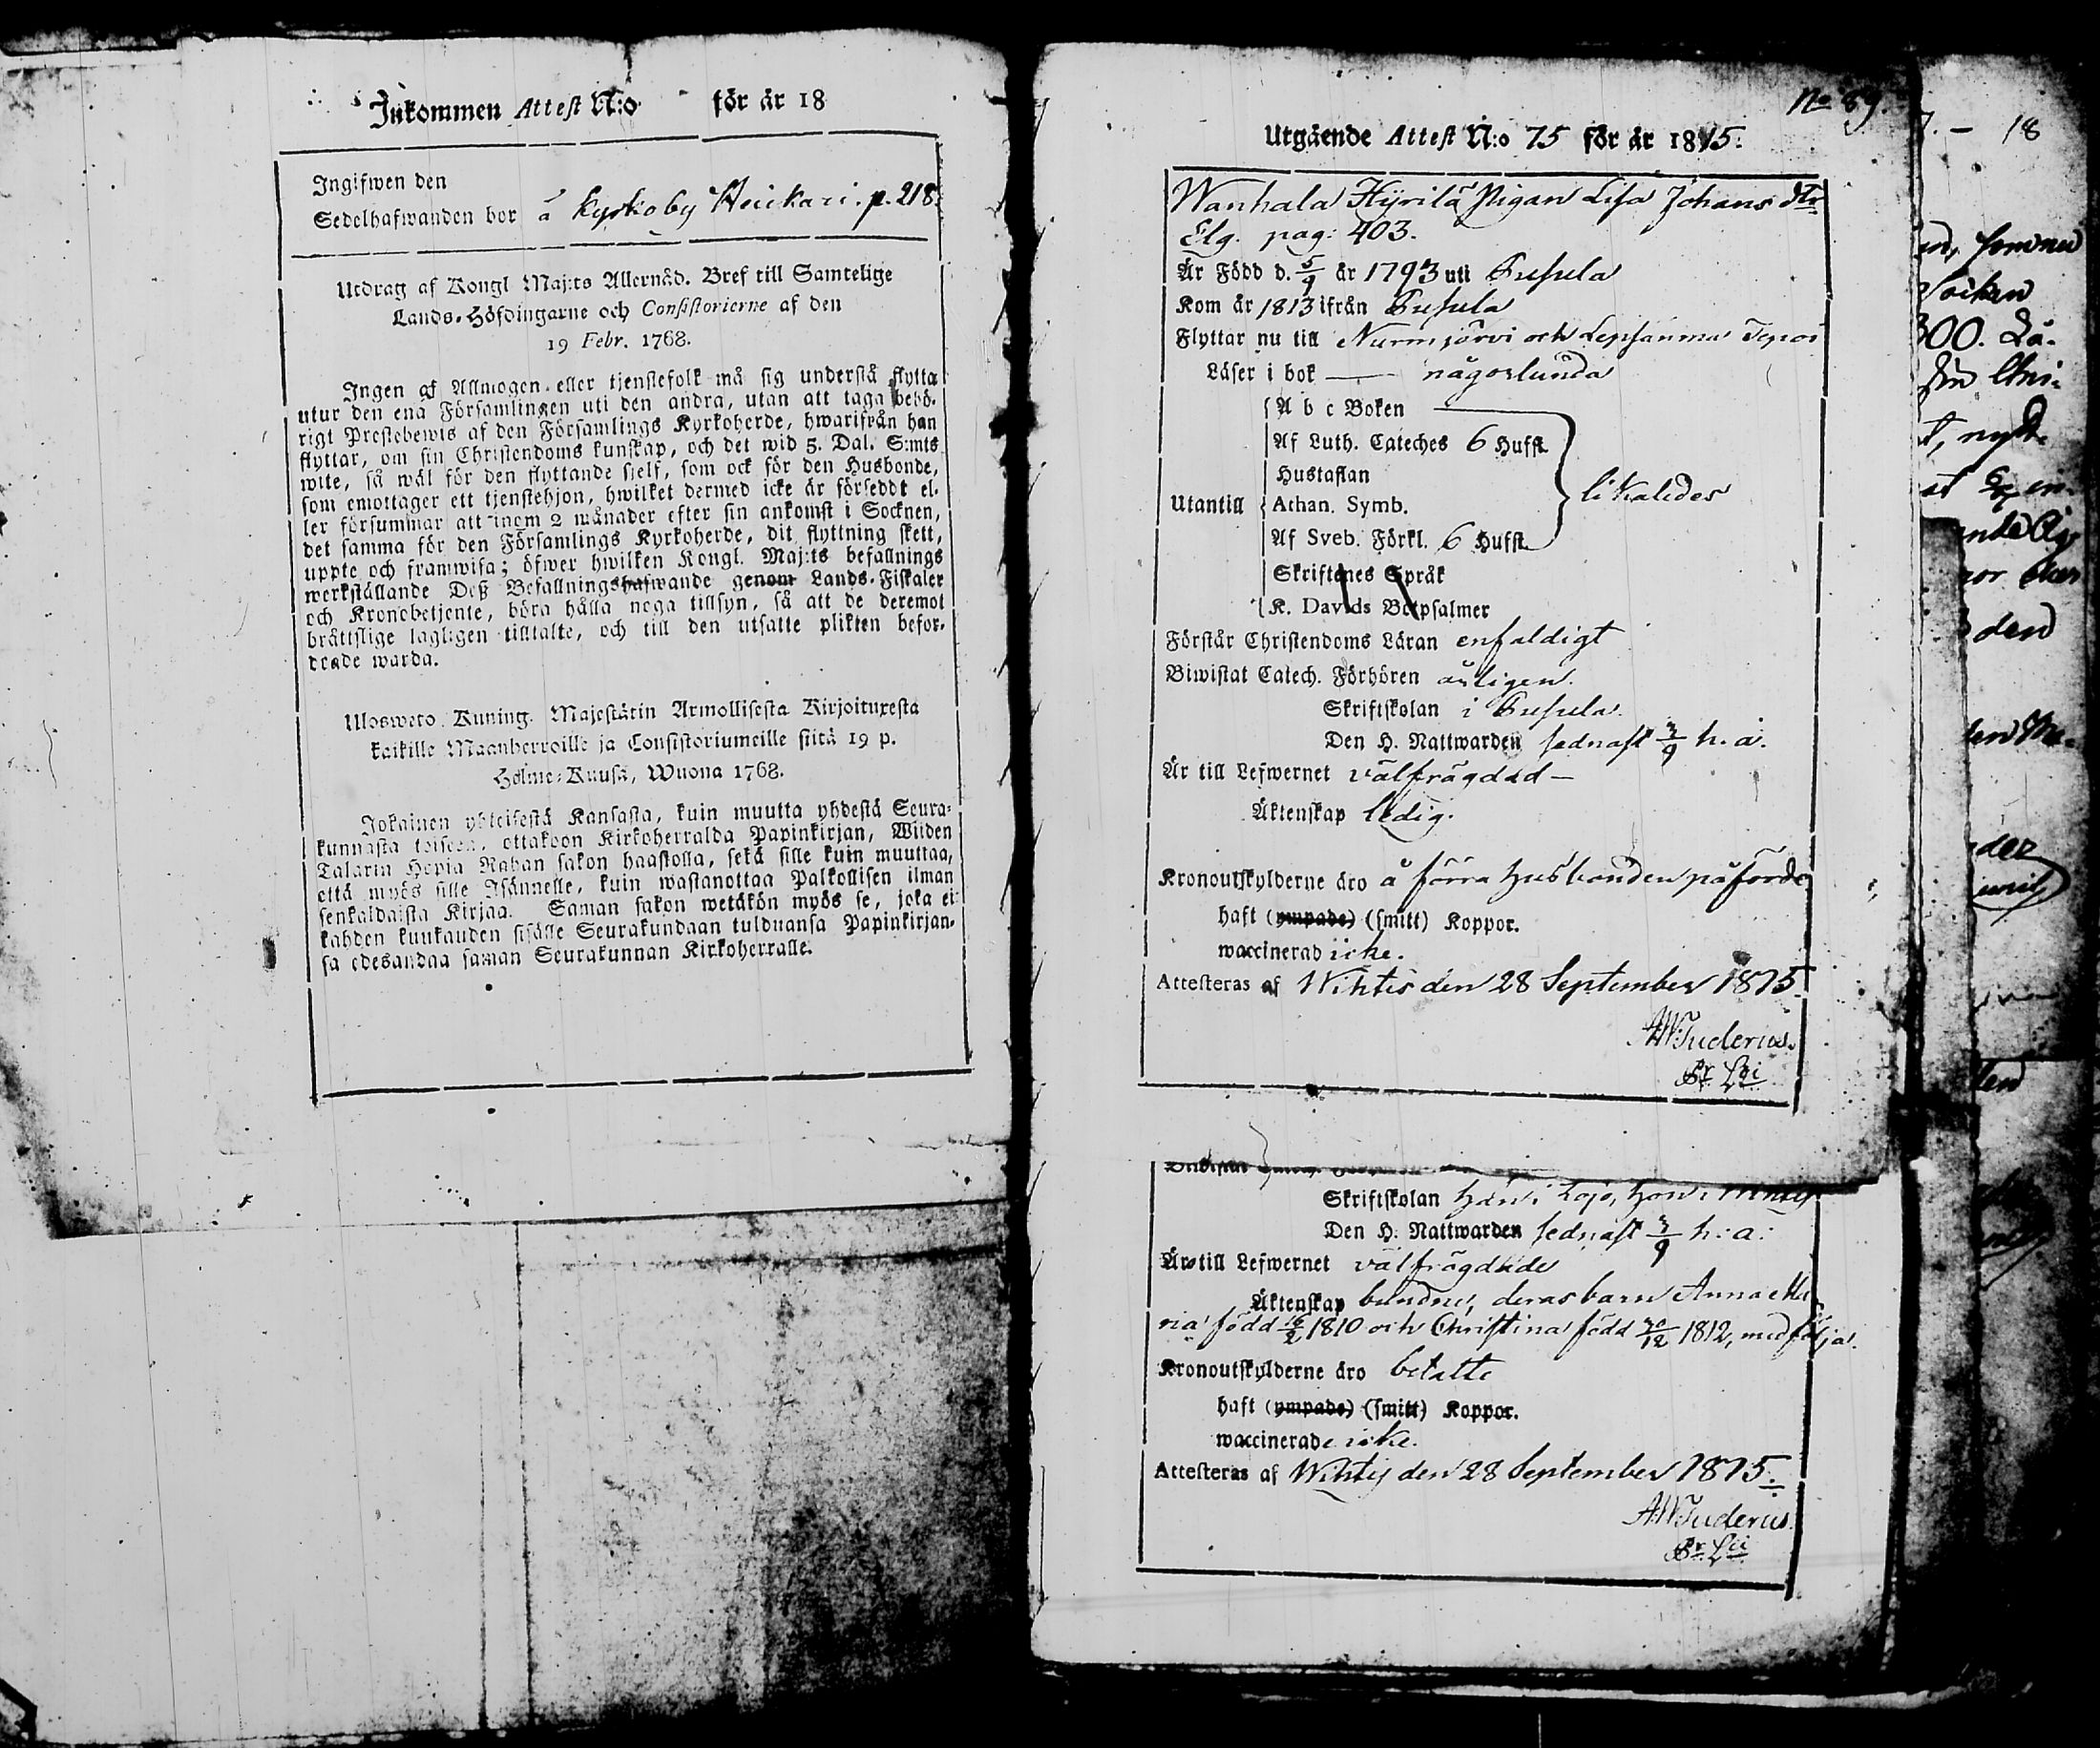 Inkommen Attest N:o för år 18
Ingifwen den
Sedelhafwanden bor å Kyrkoby Heickari. p. 218.
Utdrag af Kongl Maj:ts Allernåd. Bref till Samtelige
Lands-Höfdingarne och Consistorierne af den
19 Febr. 1768.
Ingen af Allmogen eller tjenstefolk må sig understå flytta
utur den ena Församlingen uti den andra, utan att taga behö-
rigt Prestebewis af den Församlings Kyrkoherde, hwarifrån han
flyttar, om sin Christendoms kunskap, och det wid 5. Dal. S:mts
wite, så wäl för den flyttande sjelf, som ock för den Husbonde,
som emottager ett tjenstehjon, hwilket dermed icke är försedt el-
ler försummar att inom 2 månader efter sin ankomst i Socknen,
det samma för den Församlings Kyrkoherde, dit flyttning skett,
uppte och framwisa; öfwer hwilken Kongl. Maj:ts befallnings
werkställande Deß Befallningshafwande genom Lands-Fiskaler
och Kronobetjente, böra hålla noga tillsyn, så att de deremot
bråttslige lagligen tilltalte, och till den utsatte plikten befor-
drade warda.
Uloswetο Kuning. Majestätin Armollisesta Kirjoituxesta
kaikille Maanherroille ja Consistoriumeille siitä 19 p.
Helme-Kuusa, Wuona 1768.
Jokainen yhteisestä Kansasta, kuin muutta yhdestä Seura-
kunnasta toiseen, ottakoon Kirkoherralda Papinkirjan, Wiiden
Talarin Hopia Rahan sakon haastolla, sekä sille kuin muuttaa,
että myös sille Isännelle, kuin wastanottaa Palkollisen ilman
senkaldaista Kirjaa. Saman sakon wetäkön myös se, joka ei
kahden kuukauden sisälle Seurakundaan tulduansa Papinkirjan-
sa edesandaa saman Seurakunnan Kirkoherralle.
No 89.
Utgående Attest N:o 75 för år 1815.
Wanhala Hyrilä Pigan Lisa Johans dtr
Elg. pag: 403.
Är Född d. 5/9 år 1793 uti Pusula
Kom år 1813 ifrån Pusula
Flyttar nu till Nurmijärvi och Lepsämmä
Läser i bok — någorlunda
A b c Boken
Af Luth. Cateches 6 Hufst.
Hustaflan
Utantill Athan. Symb. likaledes
Af Sveb. Förkl. 6 Hufst.
Skriftenes Språk
K. Davids Botpsalmer
Förstår Christendoms Läran enfaldigt
Biwistat Catech. Förhören årligen.
Skriftskolan i Pusula.
Den H. Nattwarden sednast 3/9 h. a.
Är till Lefwernet välfrägdad —
Äktenskap ledig.
Kronoutskylderne äro å förra husbonden påförde
haft (ympade) (smitt) Koppor.
waccinerad icke.
Attesteras af Wihtis den 28 September 1815.
AWTuderus.
Skriftskolan han i Lojo, hon i Wihtis
Den H. Nattwarden sednast 3/9 h: a:
Äro till Lefwernet välfrägdade
Äktenskap bundne, deras barn Anna Ma
ria född 16/2 1810 och Christina född 30/12 1812, medfölja.
Kronoutskylderne äro betalte
haft (ympade) (smitt) Koppor.
waccinerade icke.
Attesteras af Wihtis den 28 September 1815.
AWTuderus
18